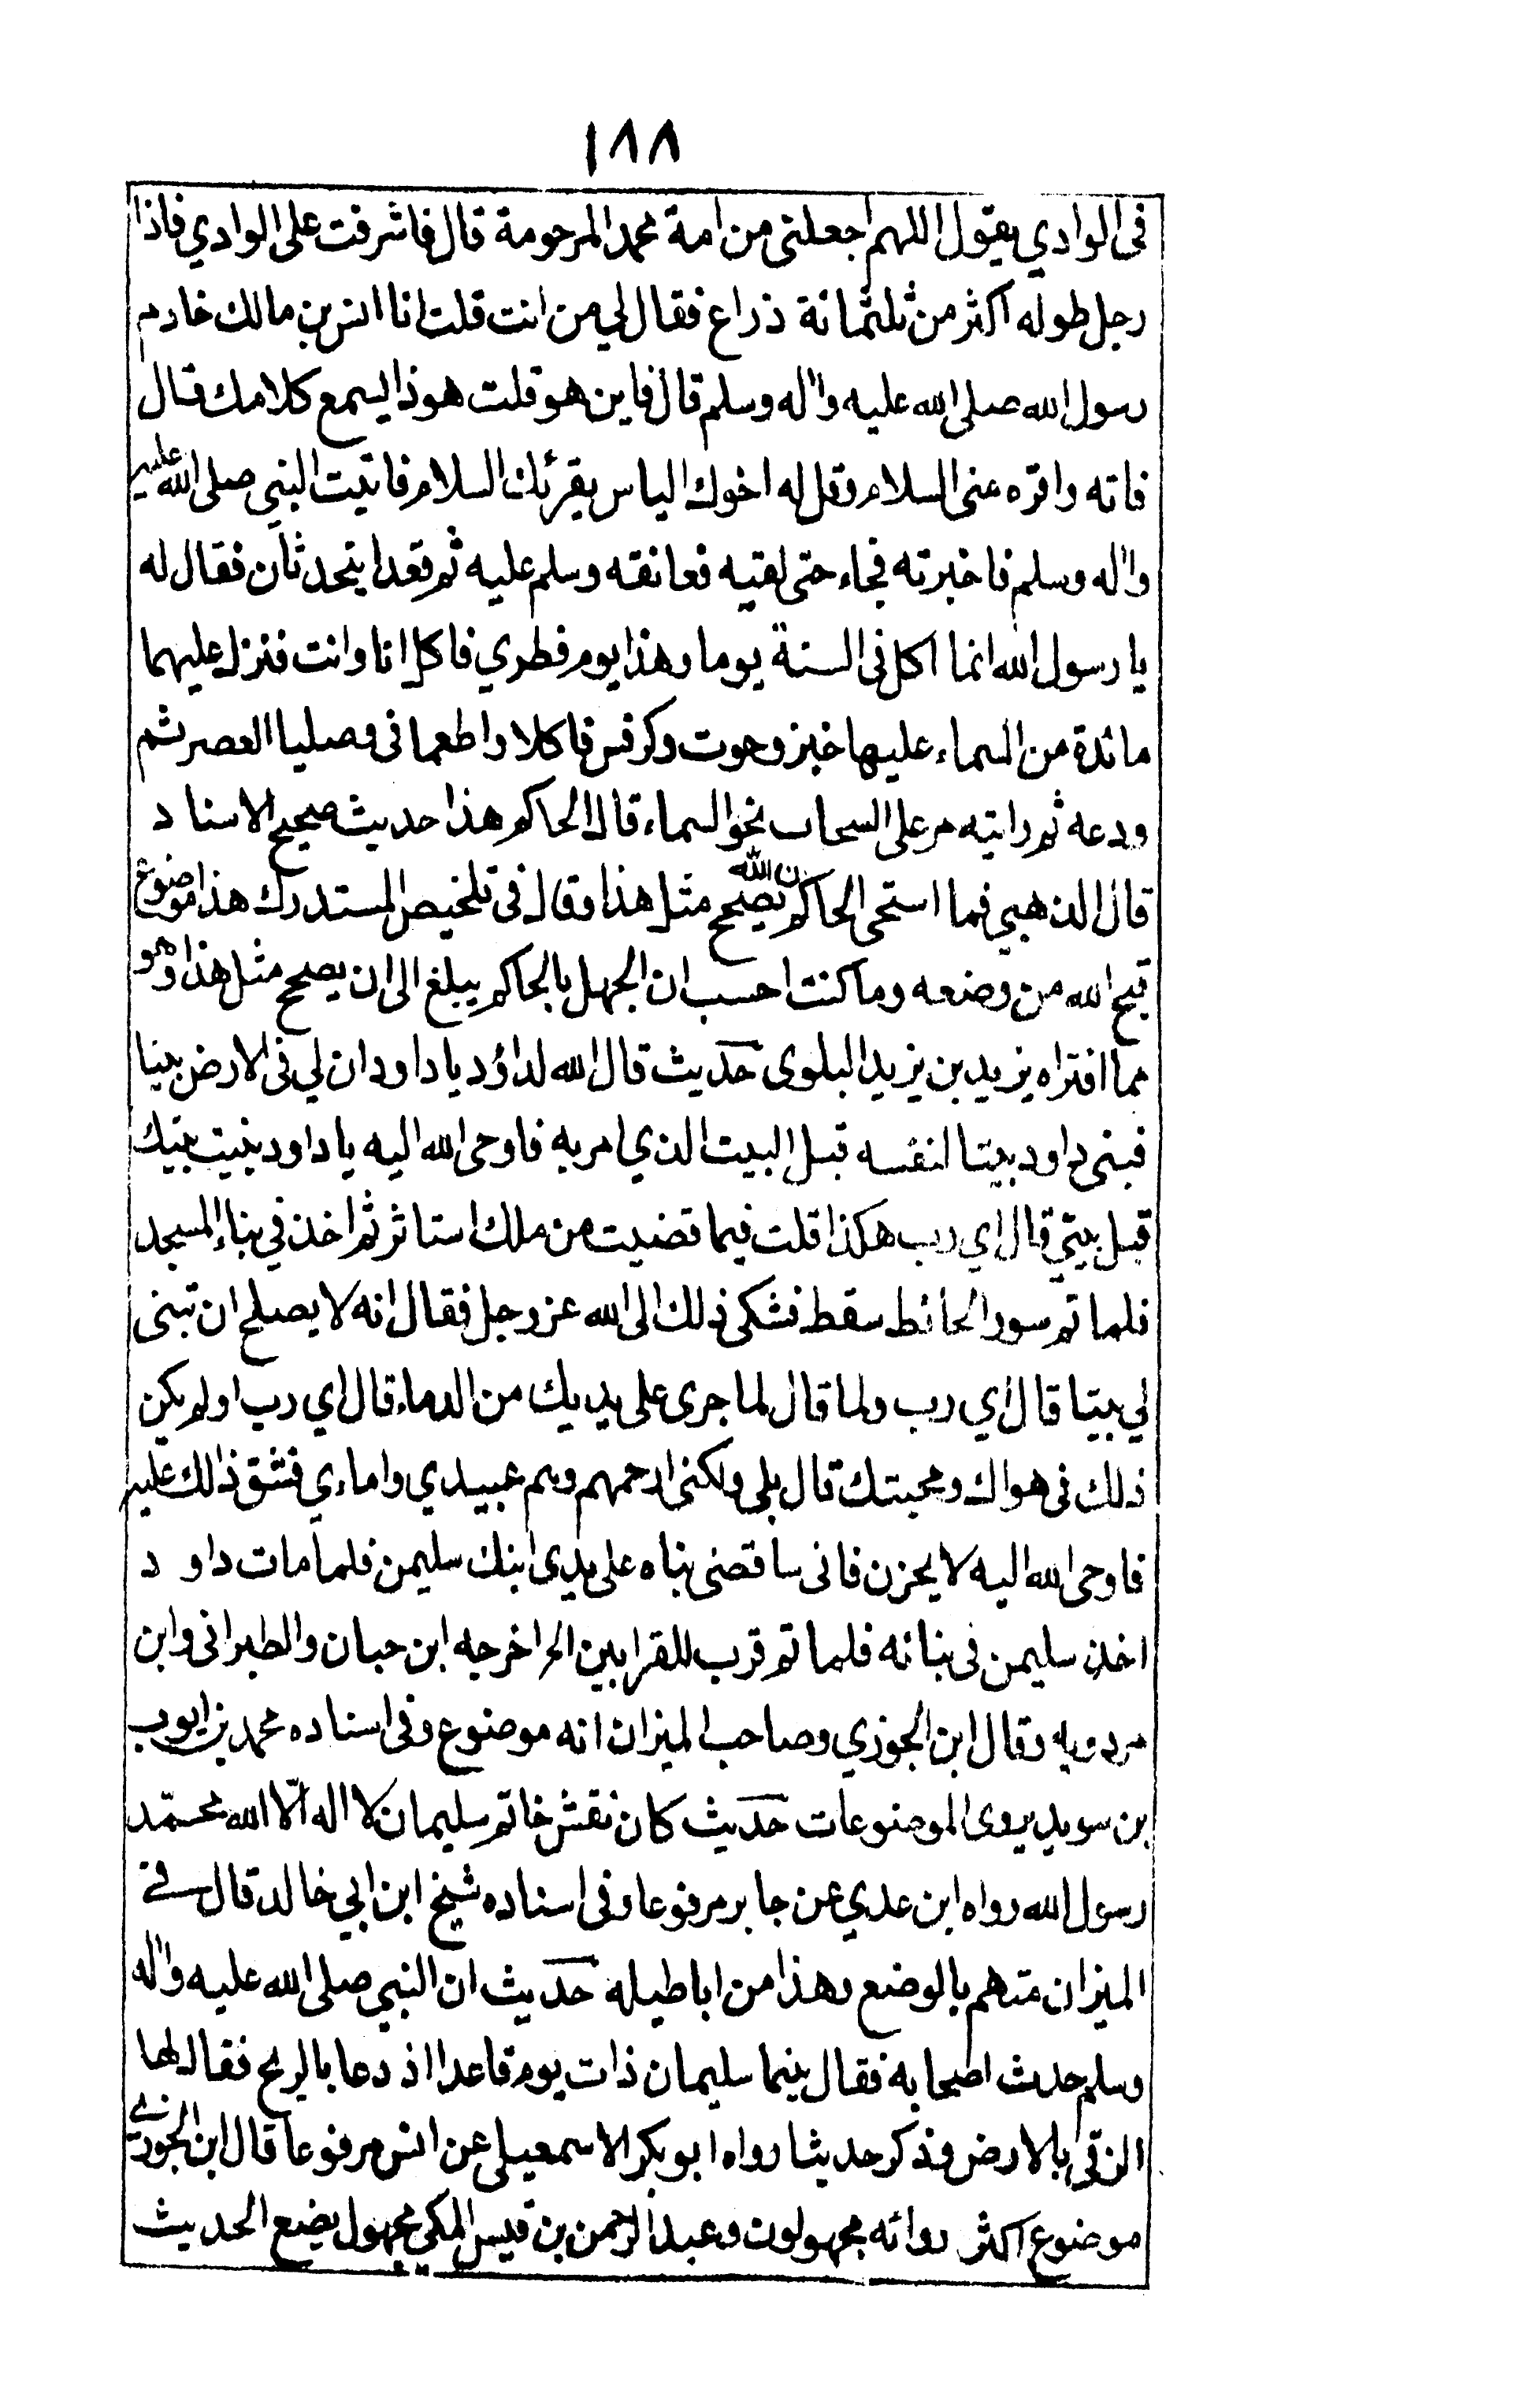 ١٨٨
فى الوادي يقول اللهم اجعلنى من امة محمد المرحومة قال فاشرفت على الوادي فاذا
رجل طوله اكثر من ثلثمائة ذراع فقال لي من انت قلت انا انس بن مالك خادم
رسول الله صلى الله عليه واٰله وسلم قال فاين هو قلت هوذا يسمع كلامك قال
فاته واقره عنى السلام وقل له اخوك الياس يقرئك السلام فاتيت النبي صلى الله عليه
واٰله وسلم فاخبرته فجاء حتى لقيه فعانقه وسلم عليه ثم قعدا يتحدثان فقال له
يا رسول الله انما اكل فى السنة يوما وهذا يوم فطري فاكل انا وانت فنزل عليهما
مائدة من السماء عليها خبز وحوت وكرفس فاكلا واطعمانى وصليا العصر ثم
ودعه ثم رايته مر على السحاب نحو السماء قال الحاكم هذا حديث صحيح الاسناد
قال الذهبي فما استحى الحاكم من الله تصحح مثل هذا وقال فى تلخيص المستدرك هذا موضوع
قبح الله من وضعه وما كنت احسب ان الجهل بالحاكم يبلغ الى ان يصحح مثل هذا وهو
مما افتراه يزيد بن يزيد البلوى حديث قال الله لداؤد يا داود ان لي فى الارض بيتا
فبنى داود بيتا لنفسه قبل البيت الذي امر به فاوحى الله اليه يا داود بنيت بيتك
قبل بيتي قال اي رب هكذا قلت فيما قضيت من ملك استاثر ثم اخذ في بناء المسجد
فلما تم سور الحائط سقط فشكى ذلك الى الله عز وجل فقال انه لا يصلح ان تبنى
لي بيتا قال اي رب ولما قال لما جرى على يديك من الدماء قال اي رب اولم يكن
ذلك فى هواك ومحبتك قال بلى ولكنى ارحمهم وهم عبيدي واماءي فشق ذالك عليه
فاوحى الله اليه لا يحزن فانى ساقضى بناه على يدى ابنك سليمن فلما مات داود
اخذ سليمن فى بنائه فلما تم قرب للقرابين الخ اخرجه ابن حبان والطبرانى وابن
مردويه وقال ابن الجوزي وصاحب الميزان انه موضوع وفى اسناده محمد بن ايوب
بن سويد يروى الموضوعات حديث كان نقش خاتم سليمان لا اله الّا الله محمّد
رسول الله رواه ابن عدي عن جابر مرفوعا وفى اسناده شيخ ابن ابي خالد قال في
الميزان متهم بالوضع وهذا من اباطيله حديث ان النبي صلى الله عليه واٰله
وسلم حدث اصحابه فقال بينما سليمان ذات يوم قاعدا اذ دعا بالريح فقال لها
الزقى بالارض وذكر حديثا رواه ابو بكر الاسمعيلى عن انس مرفوعا قال ابن الجوزي
موضوع اكثر رواته مجهولون وعبد الرحمن بن قيس المكي مجهول يضع الحديث